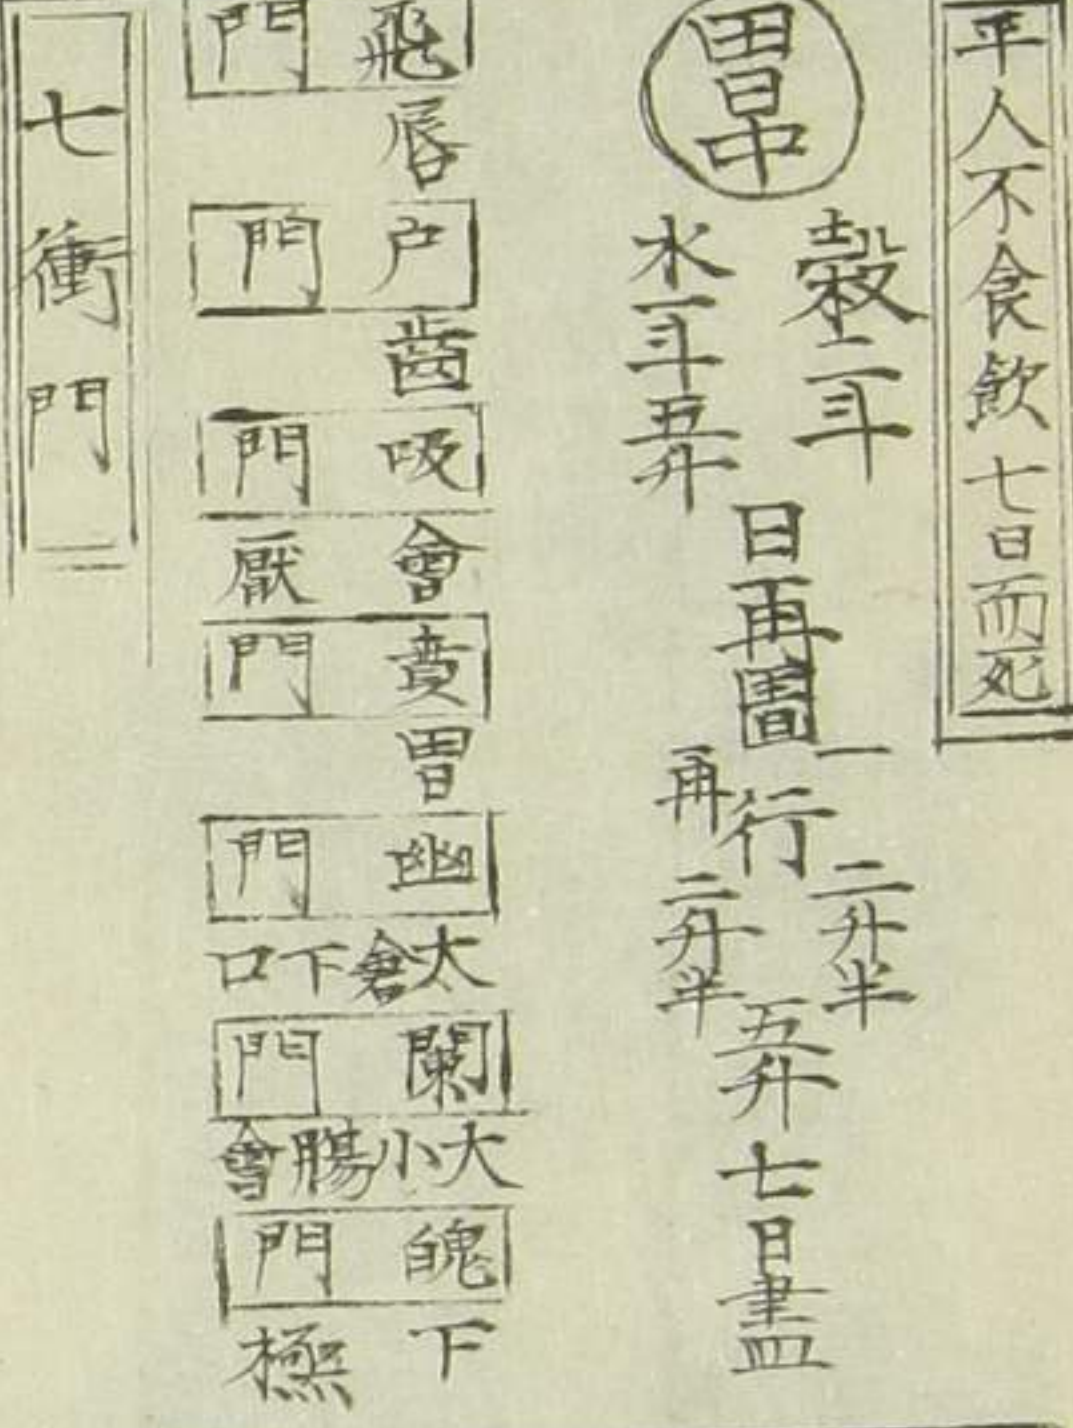 平人不食飲七日而死
胃中
穀二斗
水一斗五升
日再圊
一行二升半
再行二升半
五升七日盡
飛門
唇
户門
齒
吸門
會厭
賁門
胃
幽門
太倉下口
闌門
大小腸會
魄門
下極
七衝門